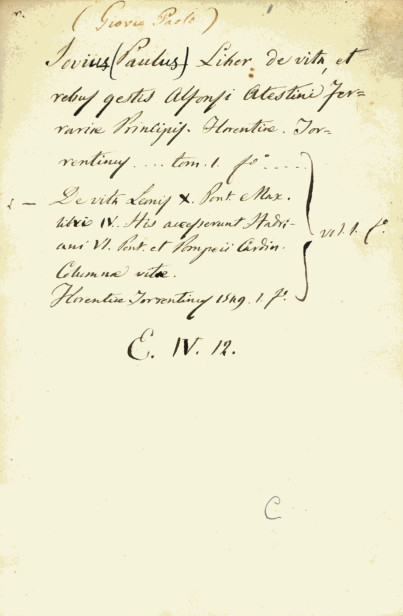 (Giovio Paolo)
Jovius (Paulus) Liber de vita et
rebus gestis Alfonsi Atestini Fer=
rariæ Principis. Florentiæ. Tor=
rentinus .... tom. 1. fo .....
2 — De vita Leonis X. Pont. Max.
libri IV. His accesserunt Hadri-
ani VI. Pont. et Pompeii Cardin.
Columnæ vitæ.
Florentiæ Torrentinus 1549. 1. fo.
vol. 1. fo.
E. IV. 12.
C